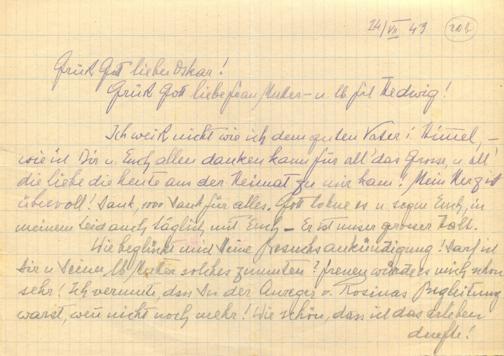 24/VII 43 
Grüß Gott lieber Oskar!
Grüß Gott liebe Frau Mutter - u. lb Frl Hedwig!
Ich weiß nicht wie ich dem guten Vater i. Himmel, -
wie ich Dir u. Euch allen danken kann für all' das Grosse, u. all'
die Liebe die heute aus der Heimat zu mir kam! Mein Herz ist
übervoll! Dank, 1000 Dank für alles. Gott lohne es u. segne Euch, in
meinem Leid auch täglich mit Euch - Er ist unser grosser Halt.
Wie beglückt mich Deine Besuchsankündigung! Darf ich
Dir u. Deiner lb Mutter solches zumuten? freuen würde es mich schon
sehr! Ich vermute, dass Du der Anreger v. Rosinas Begleitung
warst, wenn nicht noch mehr! Wie schön, dass ich das erleben
durfte!